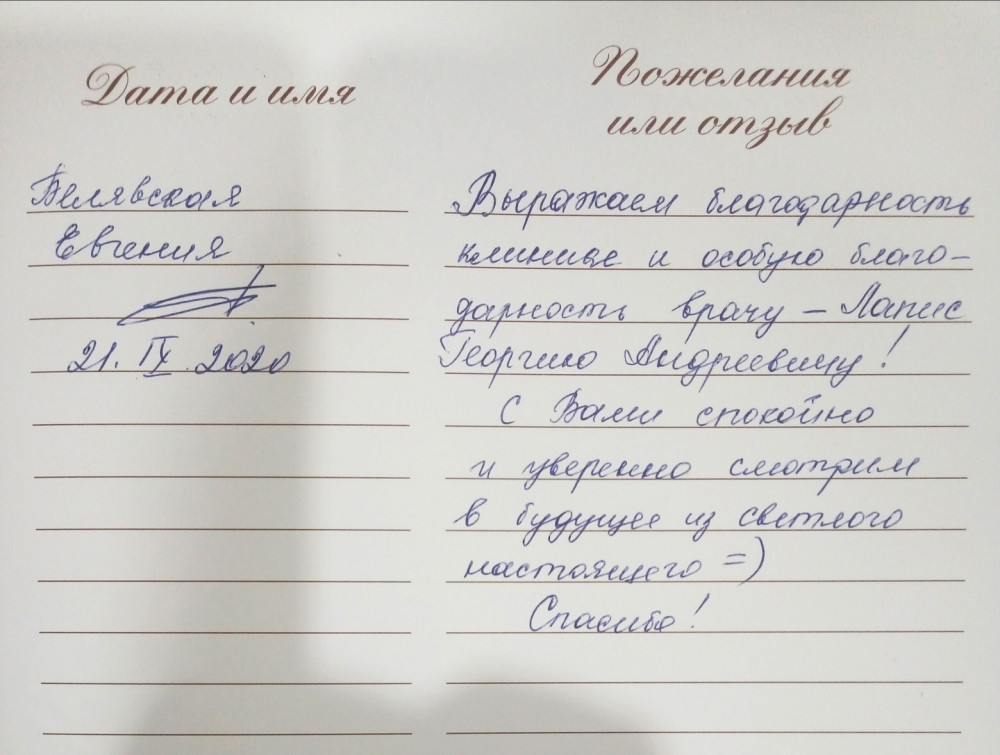 Дата и имя
Белявская
Евгения
21. IX. 2020
Пожелания
или отзыв
Выражаем благодарность
клинике и особую благо-
дарность врачу – Лапис
Георгию Андреевичу!
С Вами спокойно
и уверенно смотрим
в будущее из светлого
настоящего =)
Спасибо!